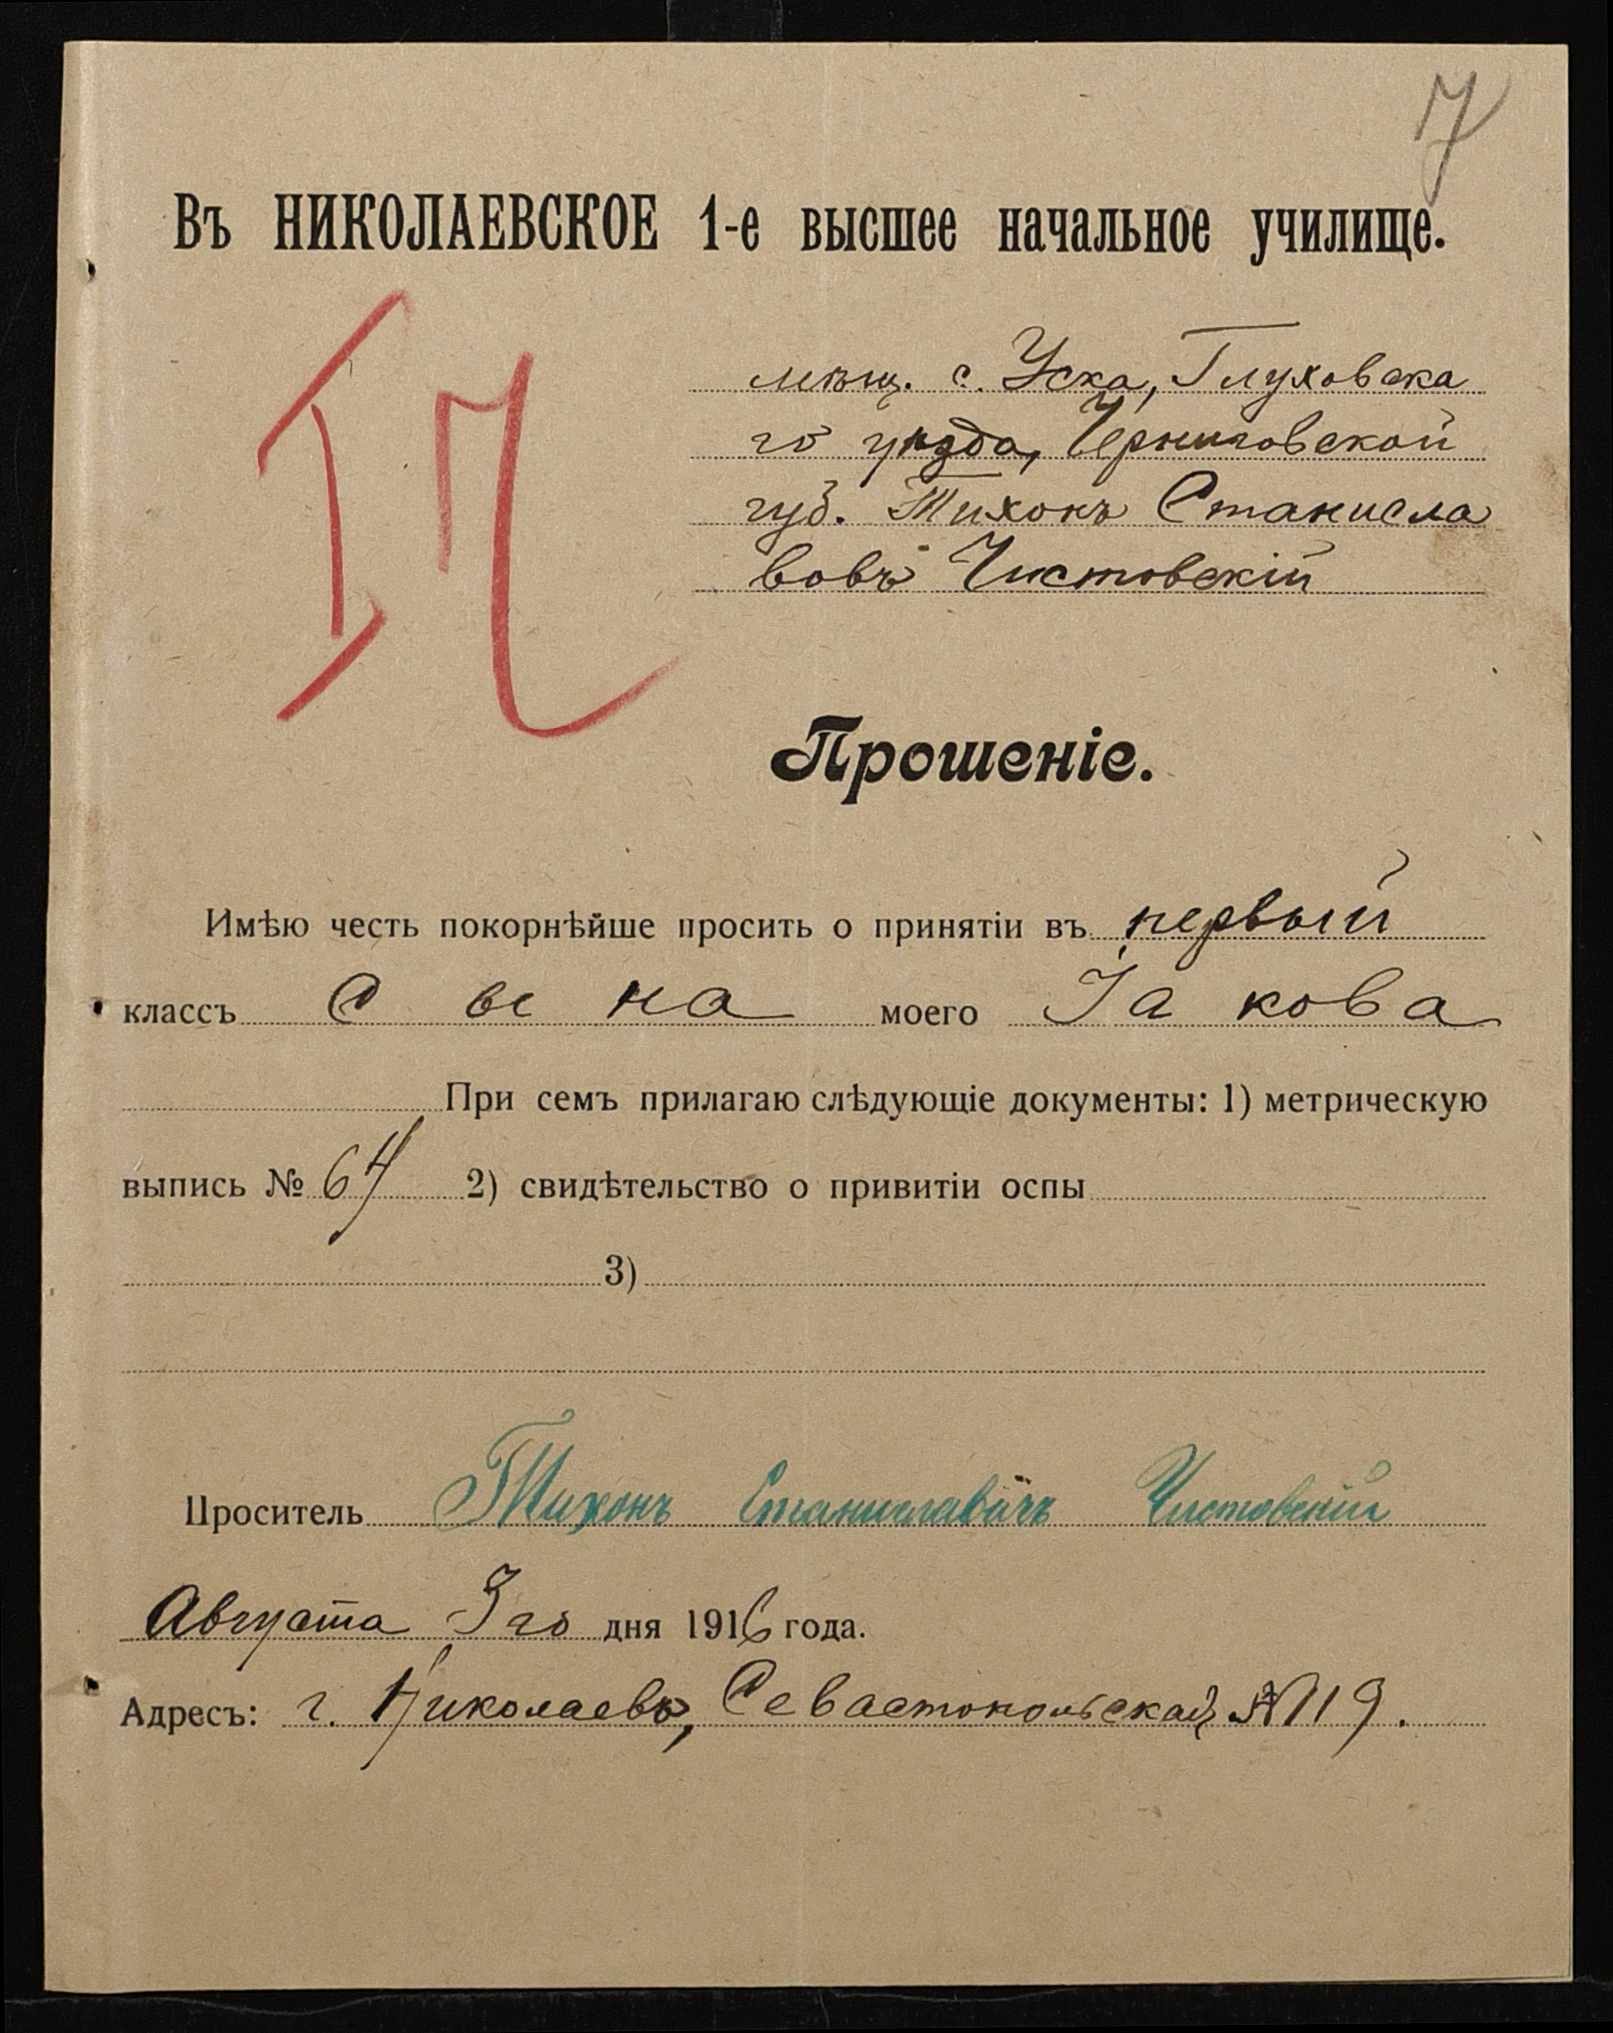 7
Въ НИКОЛАЕВСКОЕ 1-е высшее начальное училище.
мѣщ. с. Уска, Глуховска
го уѣзда, Черниговской
губ. Тихонъ Станисла
вовъ Чистовскій
Прошеніе.
Имѣю честь покорнѣйше просить о принятіи въ первый
классъ Сына моего Іакова
При семъ прилагаю слѣдующіе документы: 1) метрическую
выпись № 64 2) свидѣтельство о привитіи оспы
3)
Проситель Тихонъ Станиславичъ Чистовскій
Августа 3 го дня 1916 года.
Адресъ: г. Николаевъ, Севастопольская, № 119.